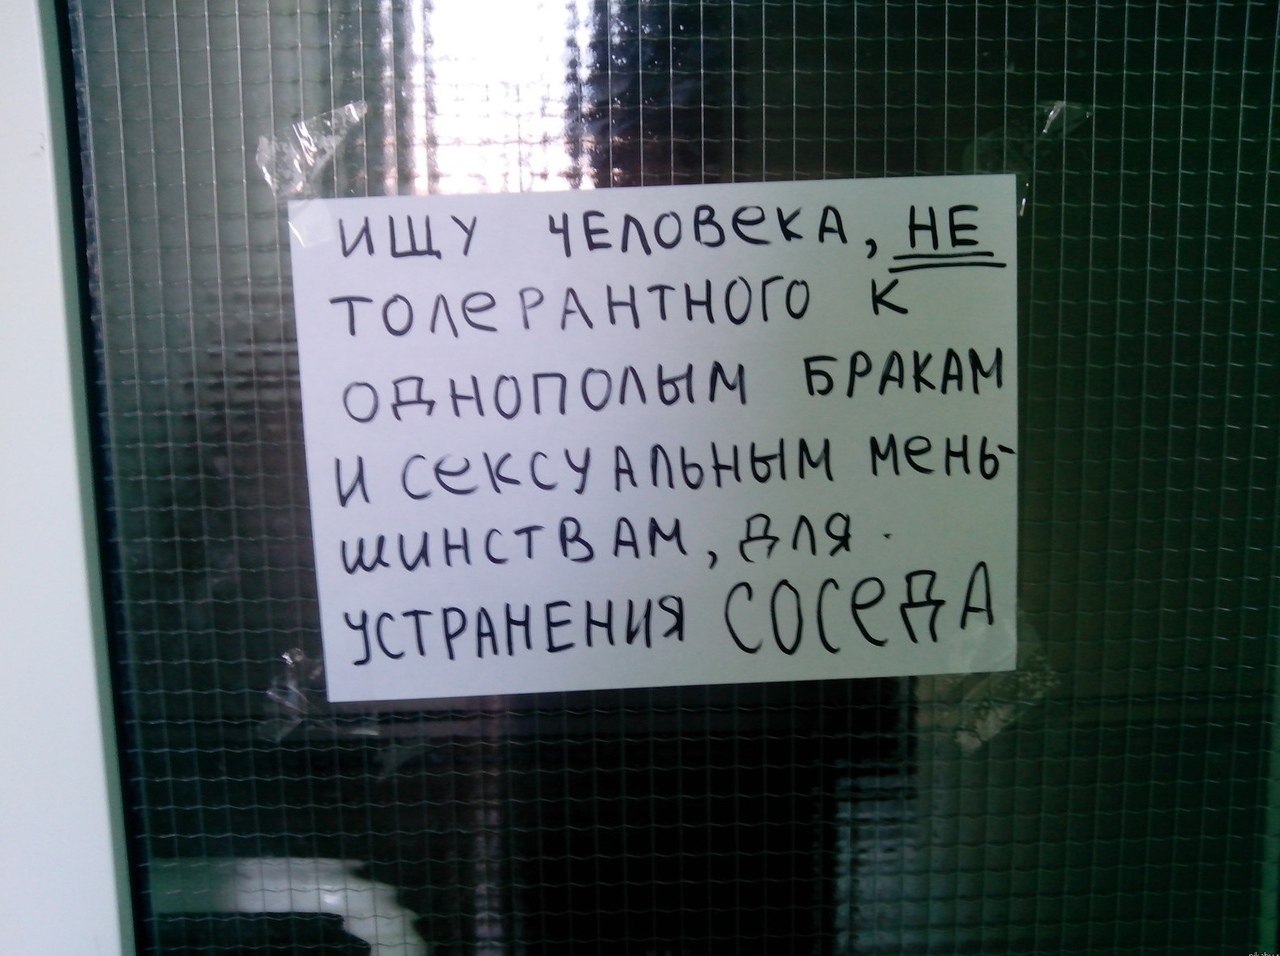 ИЩУ ЧЕЛОВЕКА, НЕ
ТОЛЕРАНТНОГО К
ОДНОПОЛЫМ БРАКАМ
И СЕКСУАЛЬНЫМ МЕНЬ-
ШИНСТВАМ, ДЛЯ
УСТРАНЕНИЯ СОСЕДА